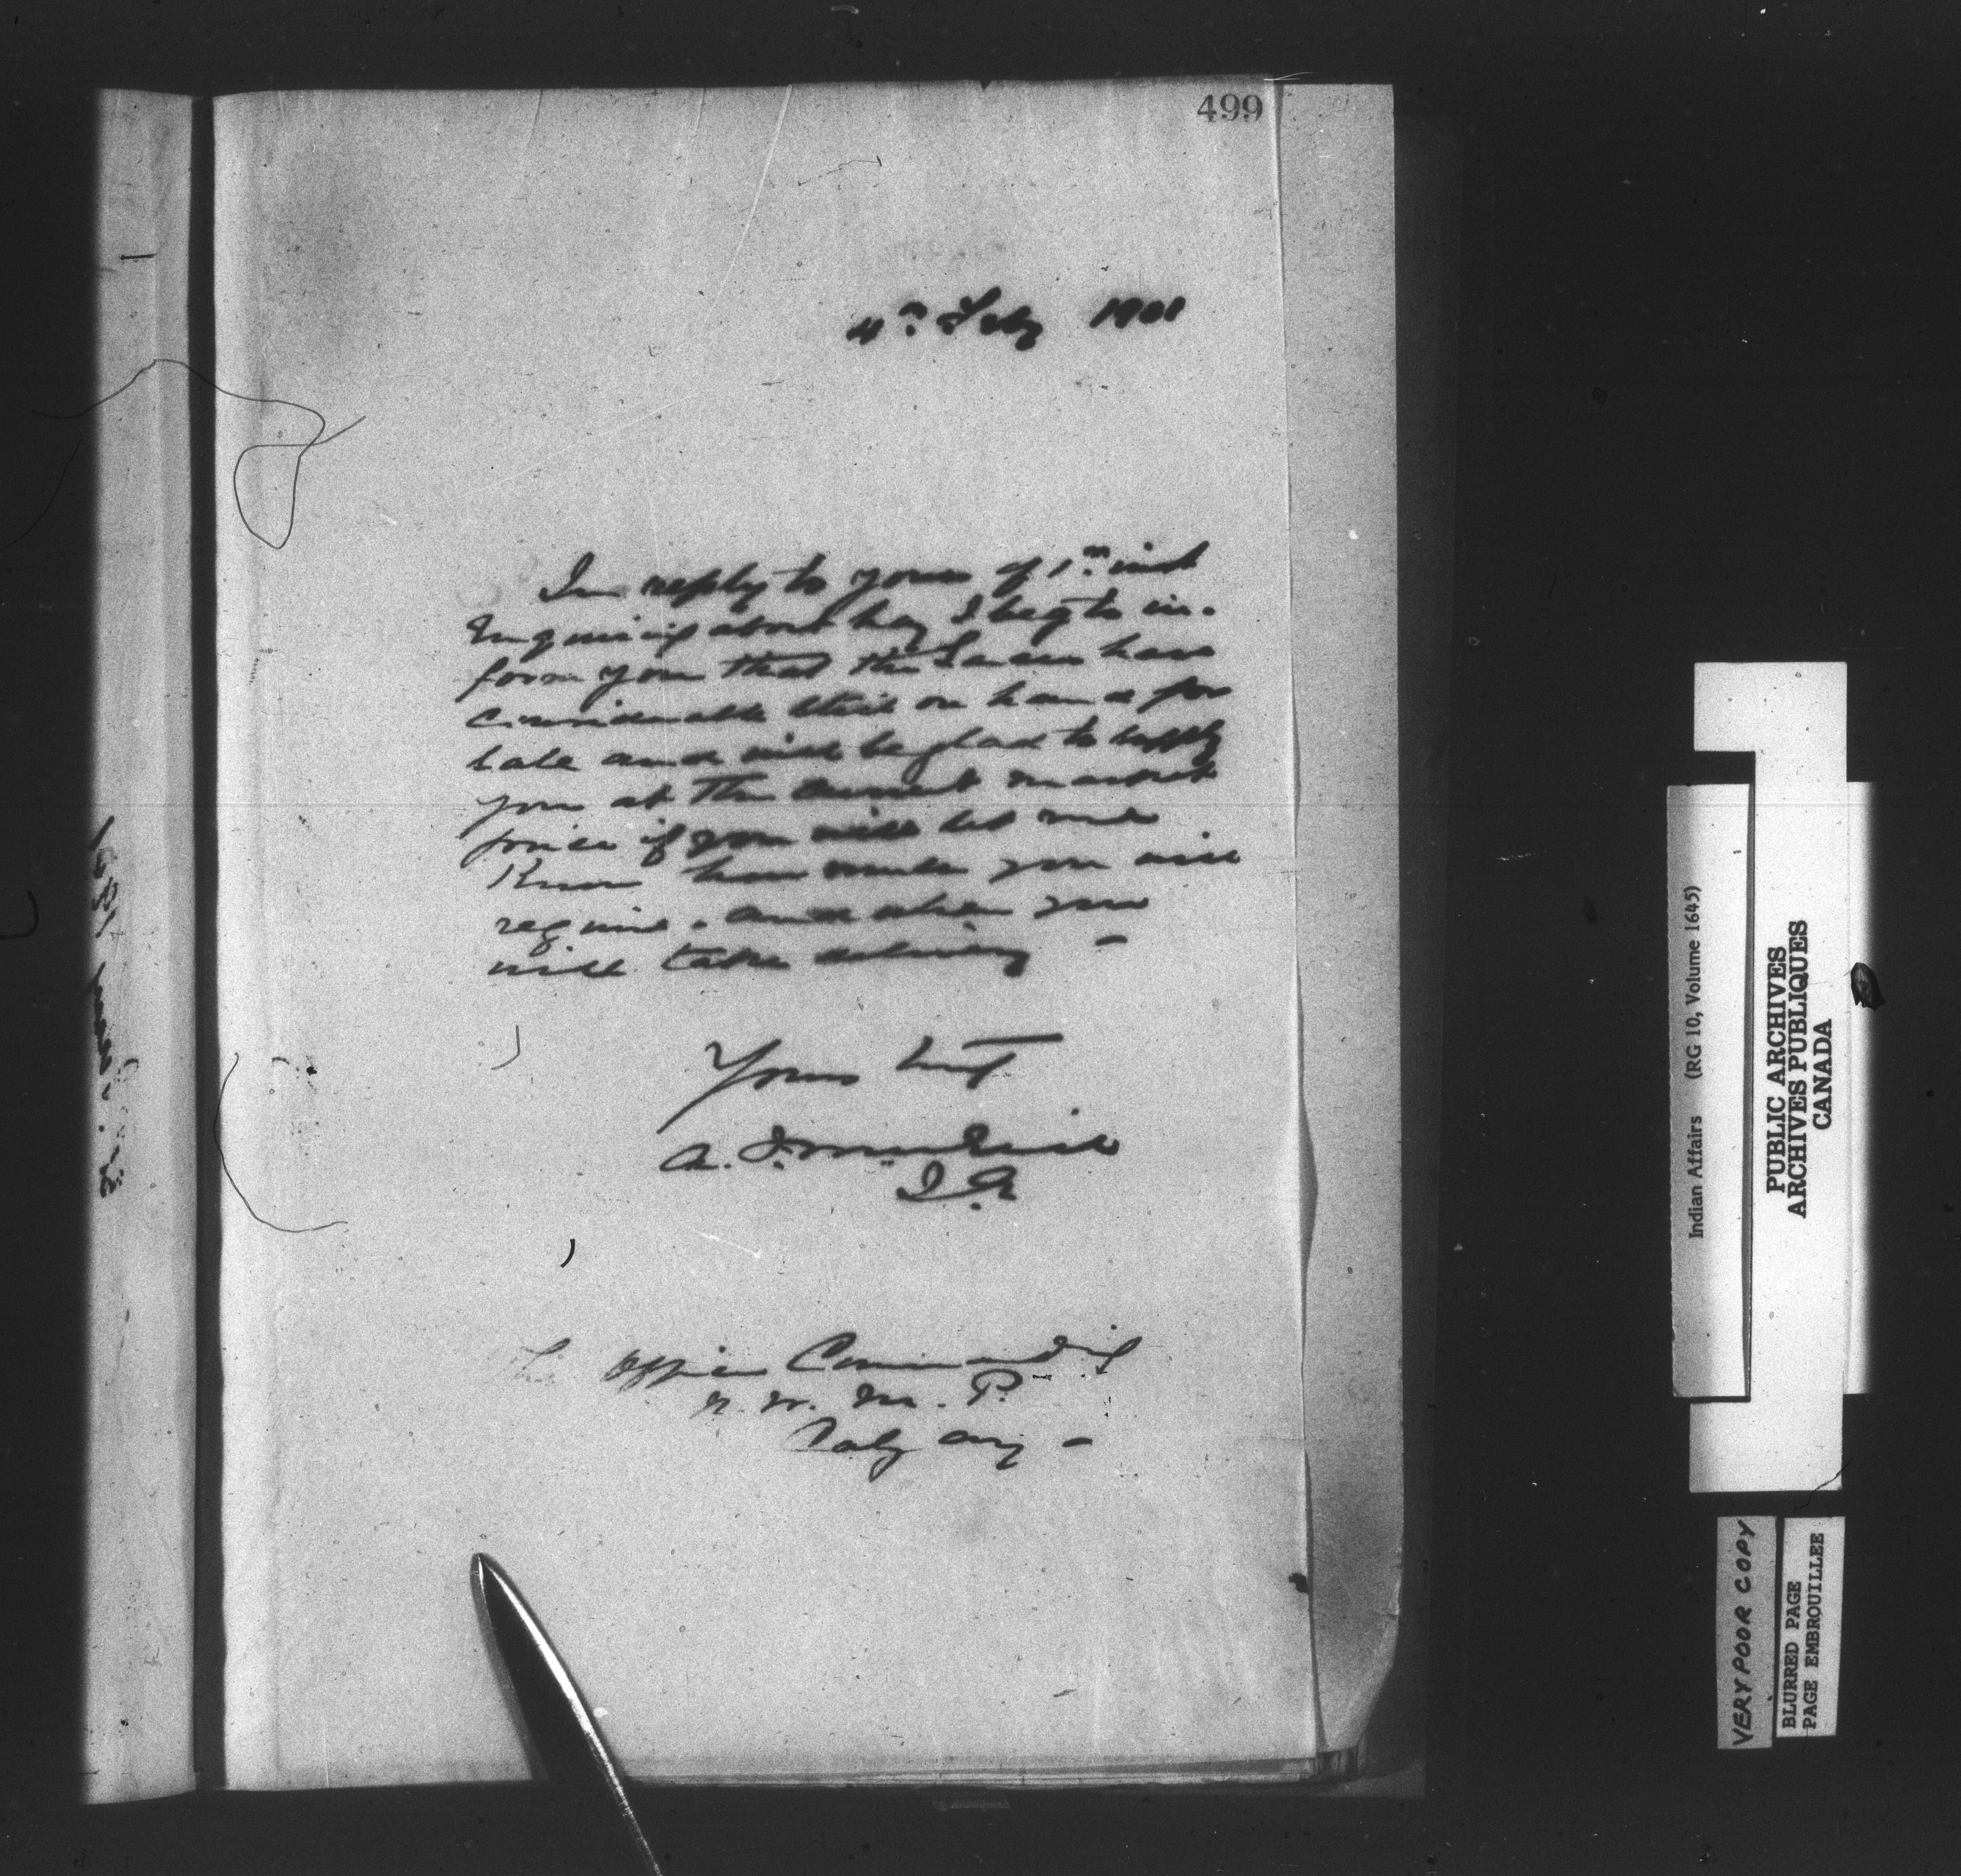 499
4th Feby 1901
In reply to yours of 1st inst
Inquiring about hay I beg to in-
form you that the Sarcees have
considerable still on hand for
sale and will be glad to supply
you at the current market
price if you will let me
Know how much you will
require. and when you
will take delivery -
Yours truly
A. J. McNeill
I. A.
The Officer Commanding
N. W. M. P.
Calgary -
Indian Affairs (RG 10, Volume 1645)
PUBLIC ARCHIVES
ARCHIVES PUBLIQUES
CANADA
VERY POOR COPY
BLURRED PAGE
PAGE EMBROUILLEE